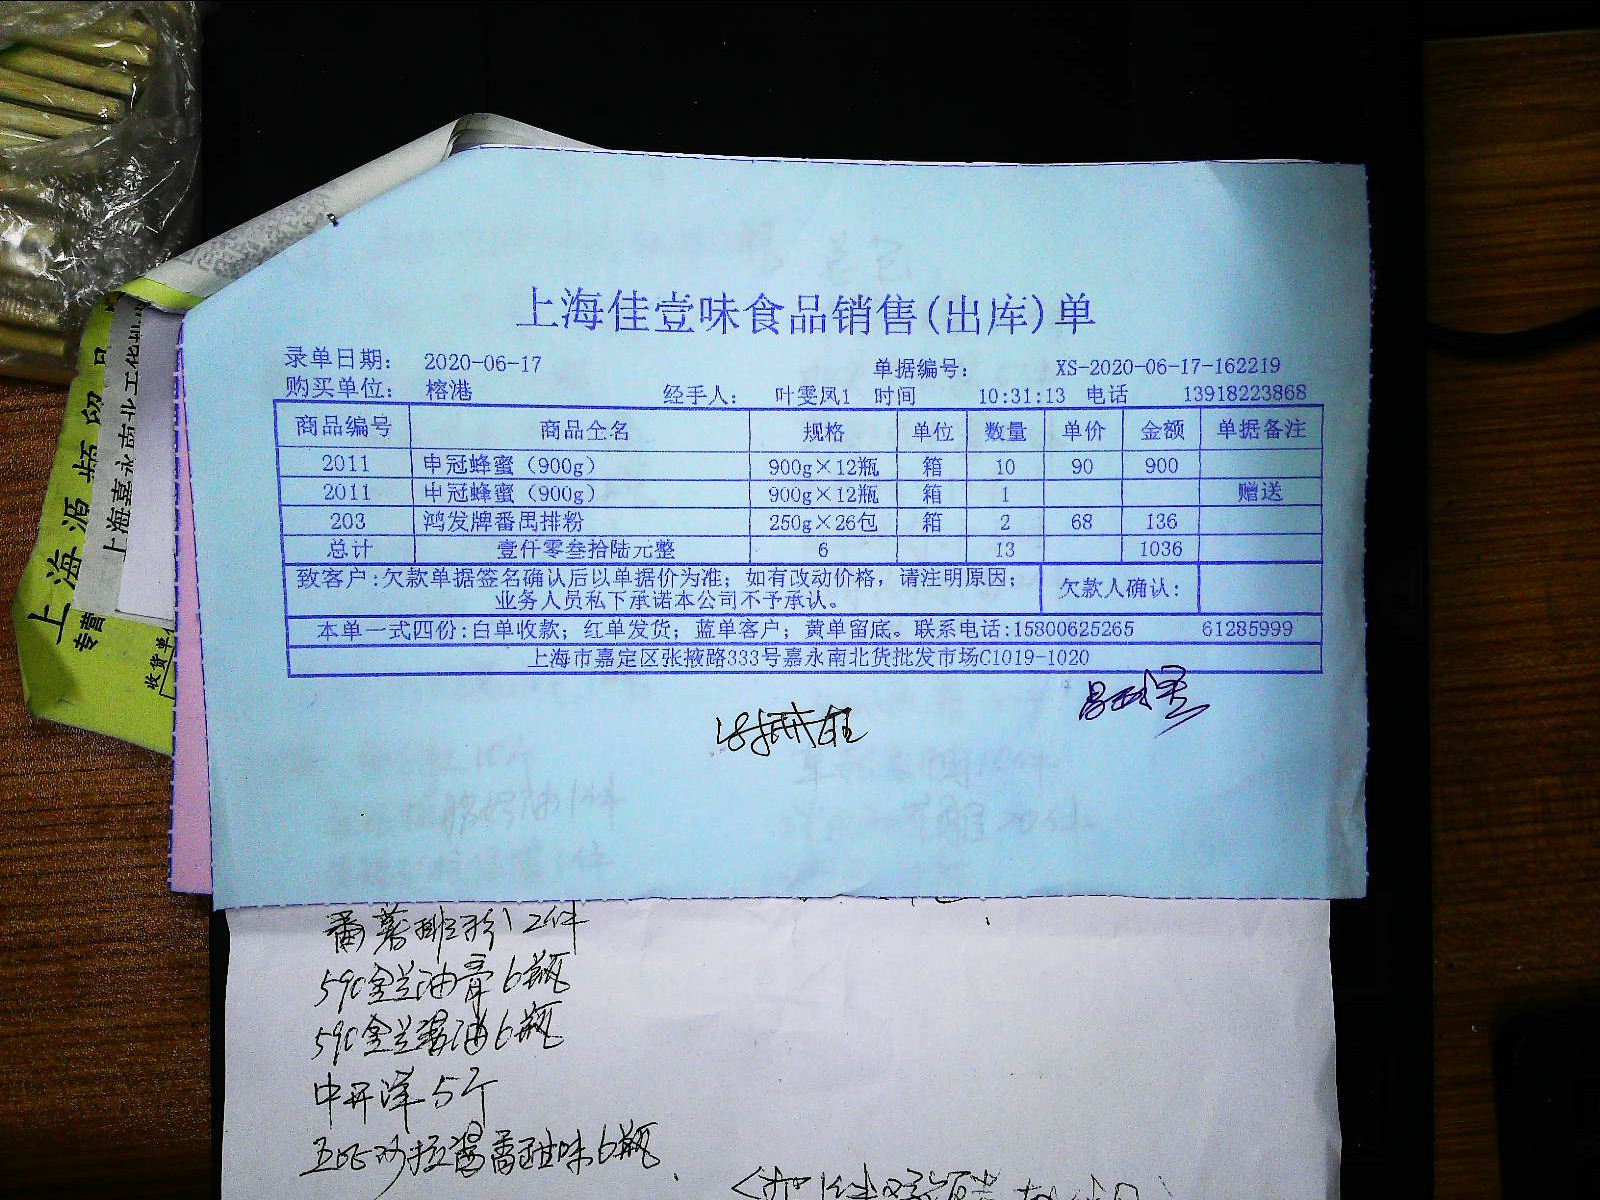 上海佳壹味食品销售(出库)单
录单日期: 2020-06-17 单据编号: XS-2020-06-17-162219
购买单位: 榕港 经手人: 叶雯凤1 时间 10:31:13 电话 13918223868
商品编号 商品全名 规格 单位 数量 单价 金额 单据备注
2011 申冠蜂蜜(900g) 900g×12瓶 箱 10 90 900
2011 申冠蜂蜜(900g) 900g×12瓶 箱 1 赠送
203 鸿发牌番禺排粉 250g×26包 箱 2 68 136
总计 壹仟零叁拾陆元整 6 13 1036
致客户:欠款单据签名确认后以单据价为准;如有改动价格,请注明原因;
业务人员私下承诺本公司不予承认。
欠款人确认:
本单一式四份:白单收款;红单发货;蓝单客户;黄单留底。联系电话:15800625265 61285999
上海市嘉定区张掖路333号嘉永南北货批发市场C1019-1020
番薯排粉12件
590金兰油膏6瓶
590金兰酱油6瓶
中开洋5斤
沙拉酱香甜味6瓶
上海
专营
上海嘉永南北
收货单